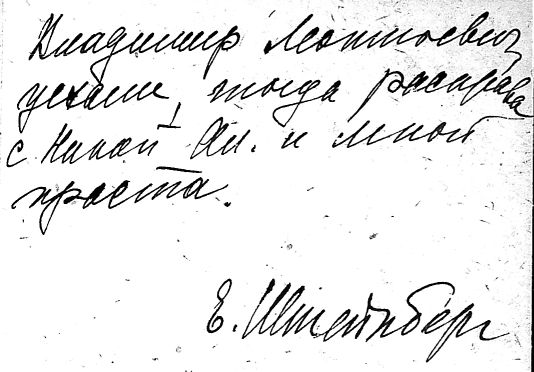 Владимир Леонтьевич
уехали, тогда расправа
с Ниной Ал. и мной
проста.
Е. Штейнберг